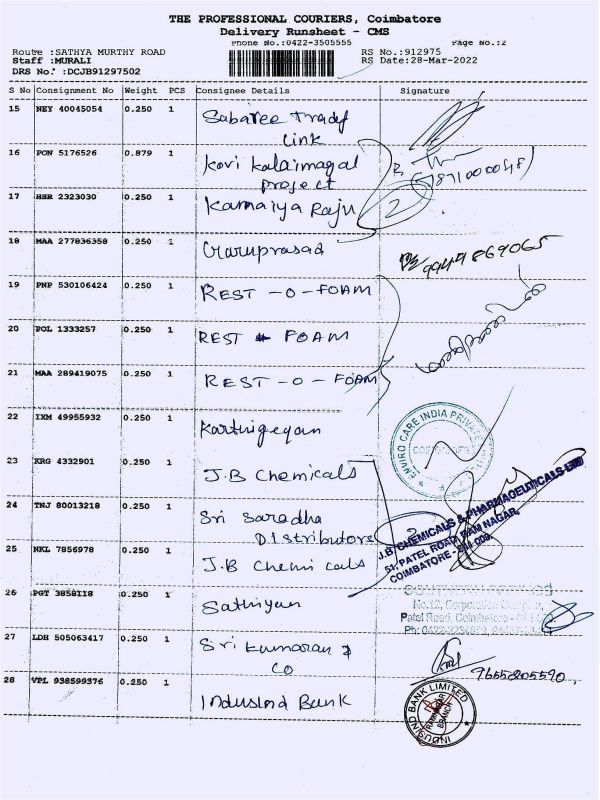 THE PROFESSIONAL COURIERS, Coimbatore
Delivery Runsheet - CMS
Phone No.:0422-3505555 Page No.:2
Route :SATHYA MURTHY ROAD RS No.:912975
Staff :MURALI RS Date:28-Mar-2022
DRS No.:DCJB91297502
S No Consignment No Weight PCS Consignee Details Signature
15 NEY 40045054 0.250 1 Sabaree Tradef
Link
16 PON 5176526 0.879 1 Kovi Kalaimagal
project
17 HSR 2323030 0.250 1 Kamaiya Raju 2
18 MAA 277836358 0.250 1 Guruprasad
9944869065
19 PNP 530106424 0.250 1 REST -O-FOAM
20 POL 1333257 0.250 1 REST FOAM
21 MAA 289419075 0.250 1 REST -O-FOAM
22 IXM 49955932 0.250 1 Karthigeyan
ENVIRO CARE INDIA PRIVATE
23 KRG 4332901 0.250 1 J.B Chemicals
24 TNJ 80013218 0.250 1 Sri Saradha
Distributors
J.B. CHEMICALS & PHARMACEUTICALS LTD
51, PATEL ROAD, RAM NAGAR,
COIMBATORE - 641 009.
25 NKL 7856978 0.250 1 J.B Chemicals
26 PGT 3858118 0.250 1 Sathiyan
No.12, Corporation Complex,
Patel Road, Coimbatore
27 LDH 505063417 0.250 1 Sri Kumaran &
Co
9655205590
28 VPL 938599376 0.250 1 IndusInd Bank
INDUSIND BANK LIMITED
RAMNAGAR
BRANCH